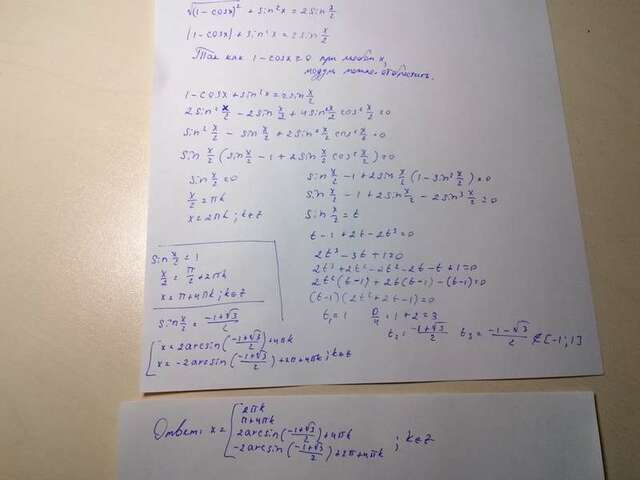 √(1-cosx)² + sin²x = 2sin x/2
|1-cosx| + sin²x = 2sin x/2
Так как 1-cosx ≥ 0 при любом x,
модуль можно отбросить.
1-cosx + sin²x = 2sin x/2
2sin² x/2 - 2sin x/2 + 4sin² x/2 cos² x/2 = 0
sin² x/2 - sin x/2 + 2sin² x/2 cos² x/2 = 0
sin x/2 (sin x/2 - 1 + 2sin x/2 cos² x/2) = 0
sin x/2 = 0
x/2 = πk
x = 2πk; k∈Z
sin x/2 - 1 + 2sin x/2 (1 - sin² x/2) = 0
sin x/2 - 1 + 2sin x/2 - 2sin³ x/2 = 0
sin x/2 = t
t - 1 + 2t - 2t³ = 0
2t³ - 3t + 1 = 0
2t³ + 2t² - 2t² - 2t - t + 1 = 0
2t²(t-1) + 2t(t-1) - (t-1) = 0
(t-1)(2t² + 2t - 1) = 0
t₁ = 1 D/4 = 1 + 2 = 3
t₂ = (-1+√3)/2 t₃ = (-1-√3)/2 ∉ [-1; 1]
sin x/2 = 1
x/2 = π/2 + 2πk
x = π + 4πk; k∈Z
sin x/2 = (-1+√3)/2
x = 2arcsin((-1+√3)/2) + 4πk
x = -2arcsin((-1+√3)/2) + 2π + 4πk; k∈Z
Ответ: x =
2πk
π + 4πk
2arcsin((-1+√3)/2) + 4πk
-2arcsin((-1+√3)/2) + 2π + 4πk
; k∈Z